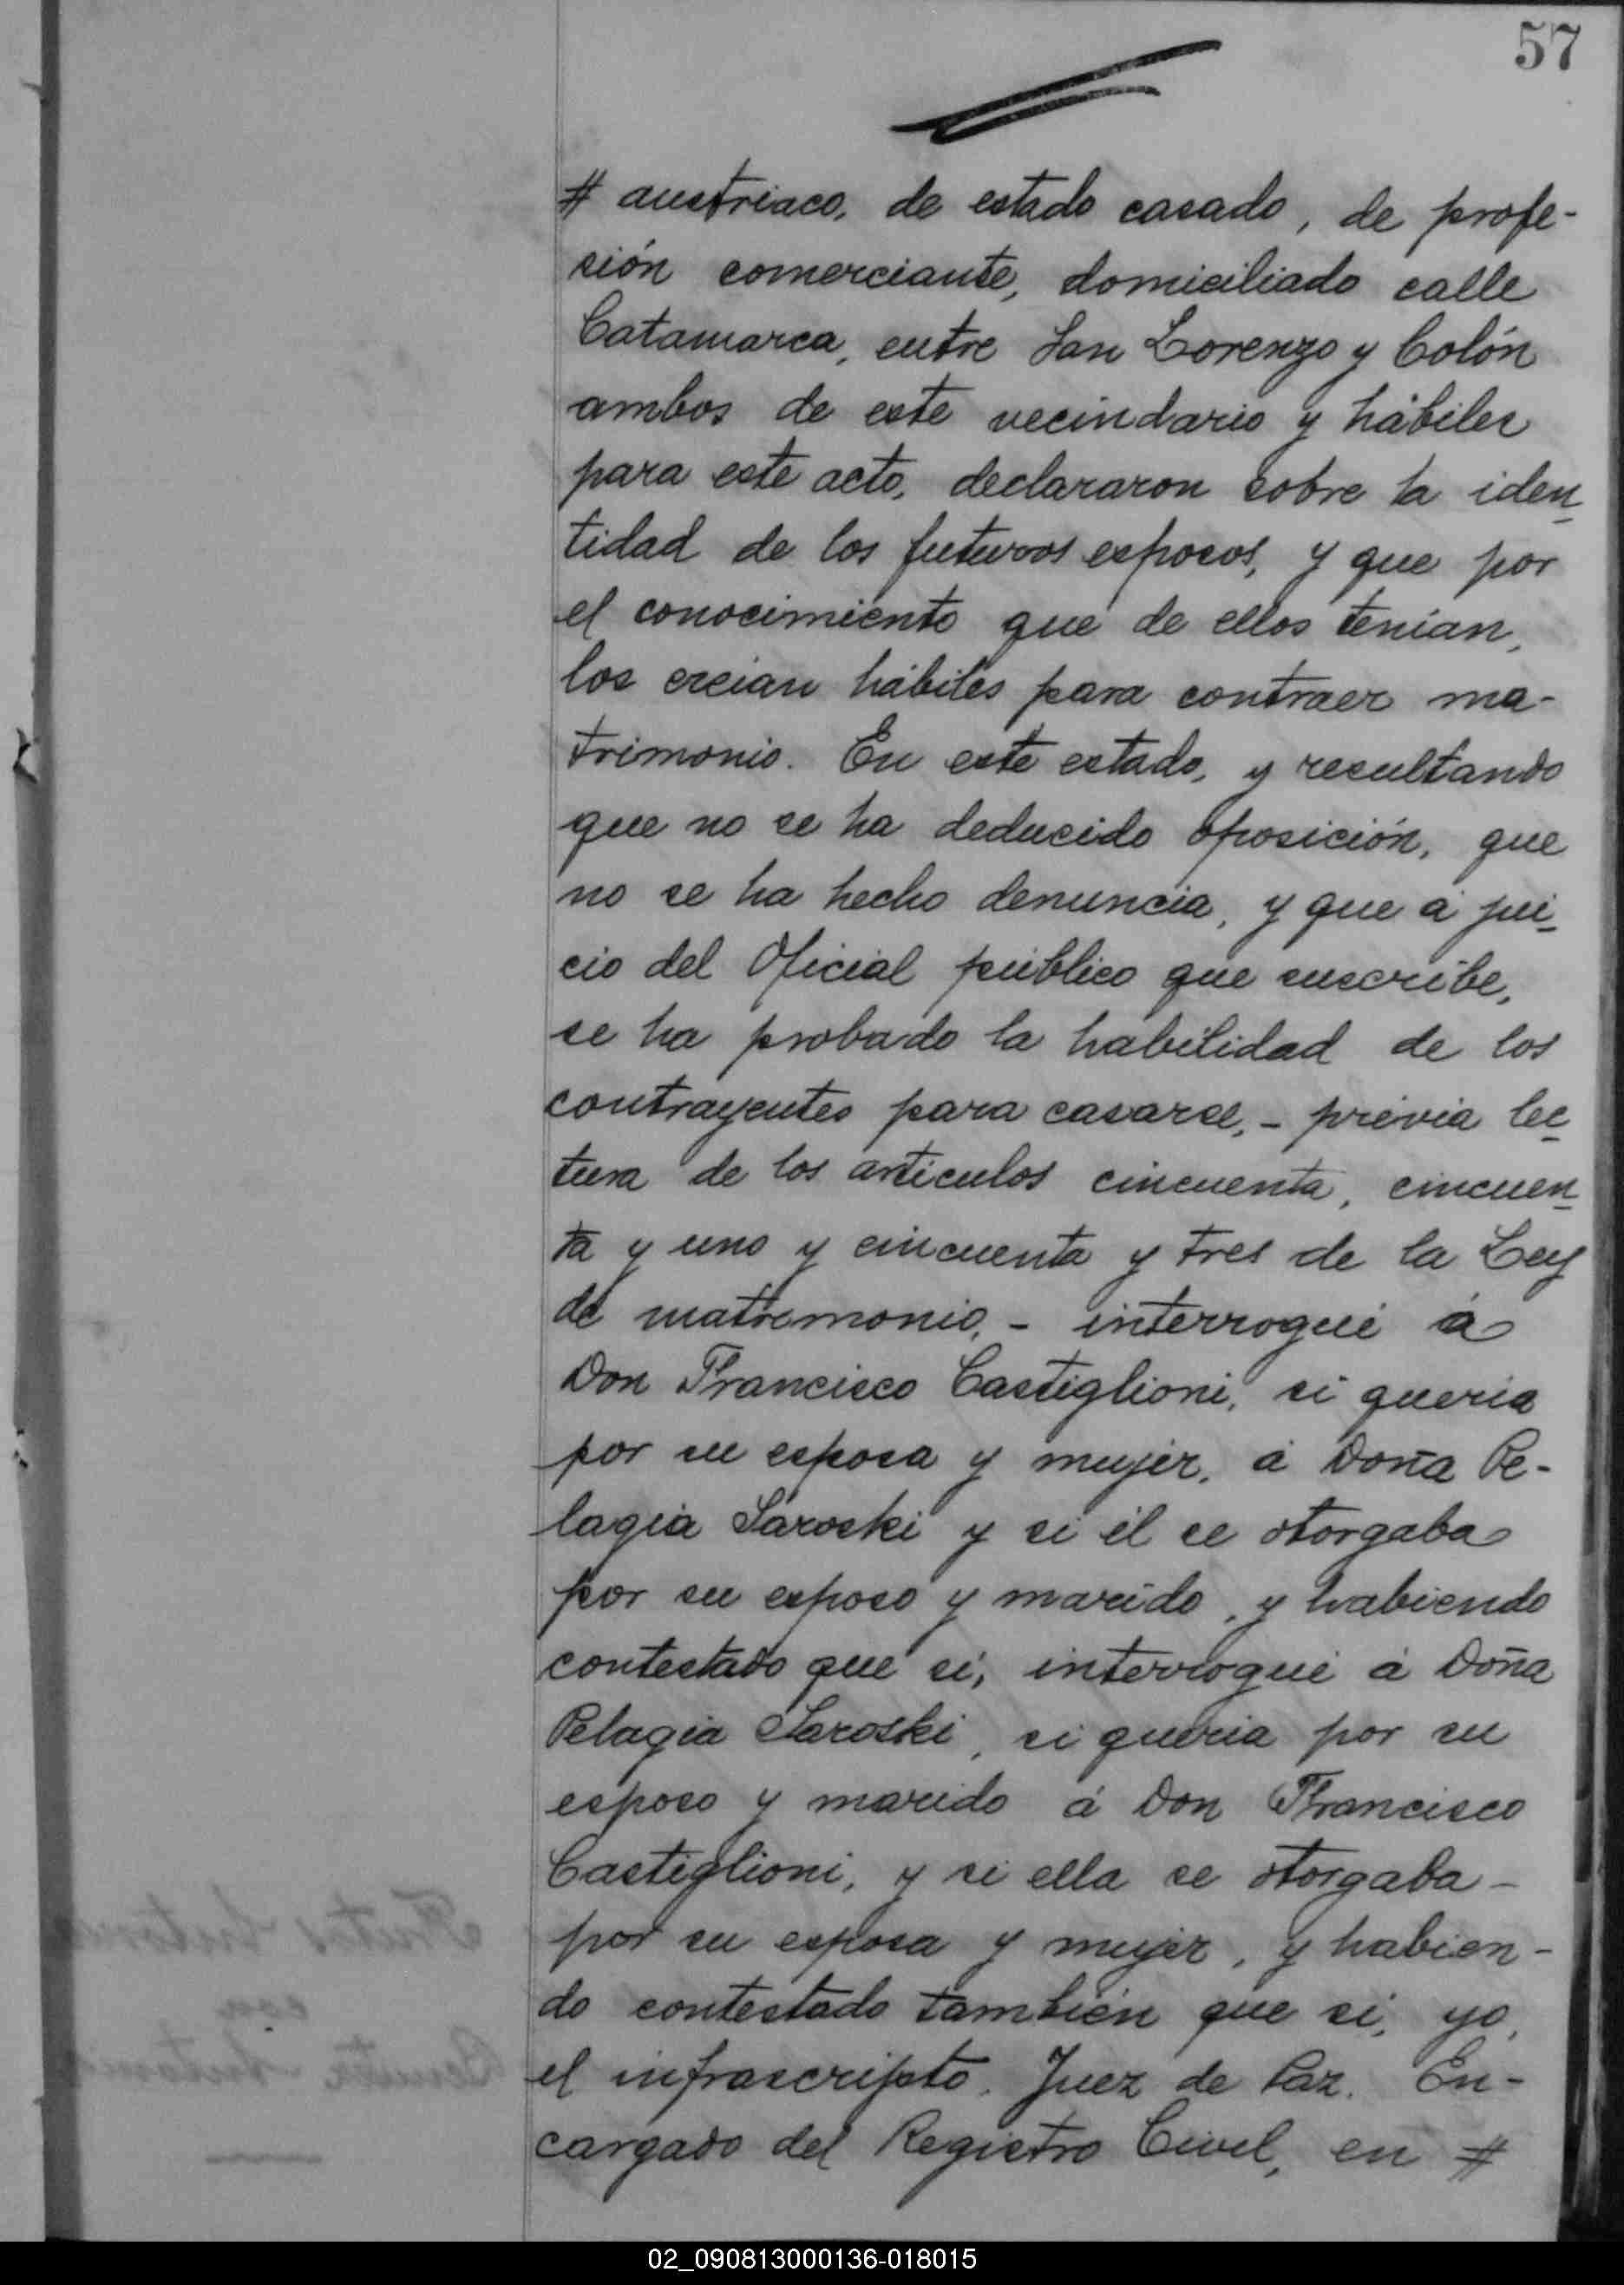 57
# austriaco, de estado casado, de profe-
sión comerciante, domiciliado calle
Catamarca, entre San Lorenzo y Colón
ambos de este vecindario y hábiles
para este acto, declararon sobre la iden
tidad de los futuros esposos, y que por
el conocimiento que de ellos tenían,
los creían hábiles para contraer ma-
trimonio. En este estado, y resultando
que no se ha deducido oposición, que
no se ha hecho denuncia, y que á jui
cio del Oficial público que suscribe,
se ha probado la habilidad de los
contrayentes para casarse, - prévia lec
tura de los artículos cincuenta, cincuen
ta y uno y cincuenta y tres de la Ley
de matrimonio, - interrogué á
Don Francisco Castiglioni, si quería
por su esposa y mujer, á Doña Pe-
lagia Saroski y si él se otorgaba
por su esposo y marido, y habiendo
contestado que sí, interrogué á Doña
Pelagia Saroski, si quería por su
esposo y marido á Don Francisco
Castiglioni, y si ella se otorgaba -
por su esposa y mujer, y habien-
do contestado también que sí, yo,
el infrascripto, Juez de Paz, En-
cargado del Registro Civil, en #
02_090813000136-018015